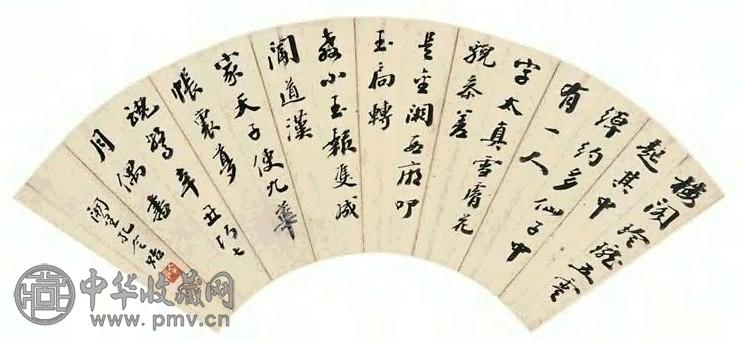 樓閣玲瓏五雲
起其中
綽約多仙子中
有一人
字太真雪膚花
貌參差
是金闕西廂叩
玉扃轉
教小玉報雙成
聞道漢
家天子使九華
帳裏夢
魂驚偶書辛丑初七
月
孔令貽
中华收藏网
www.pmv.cn